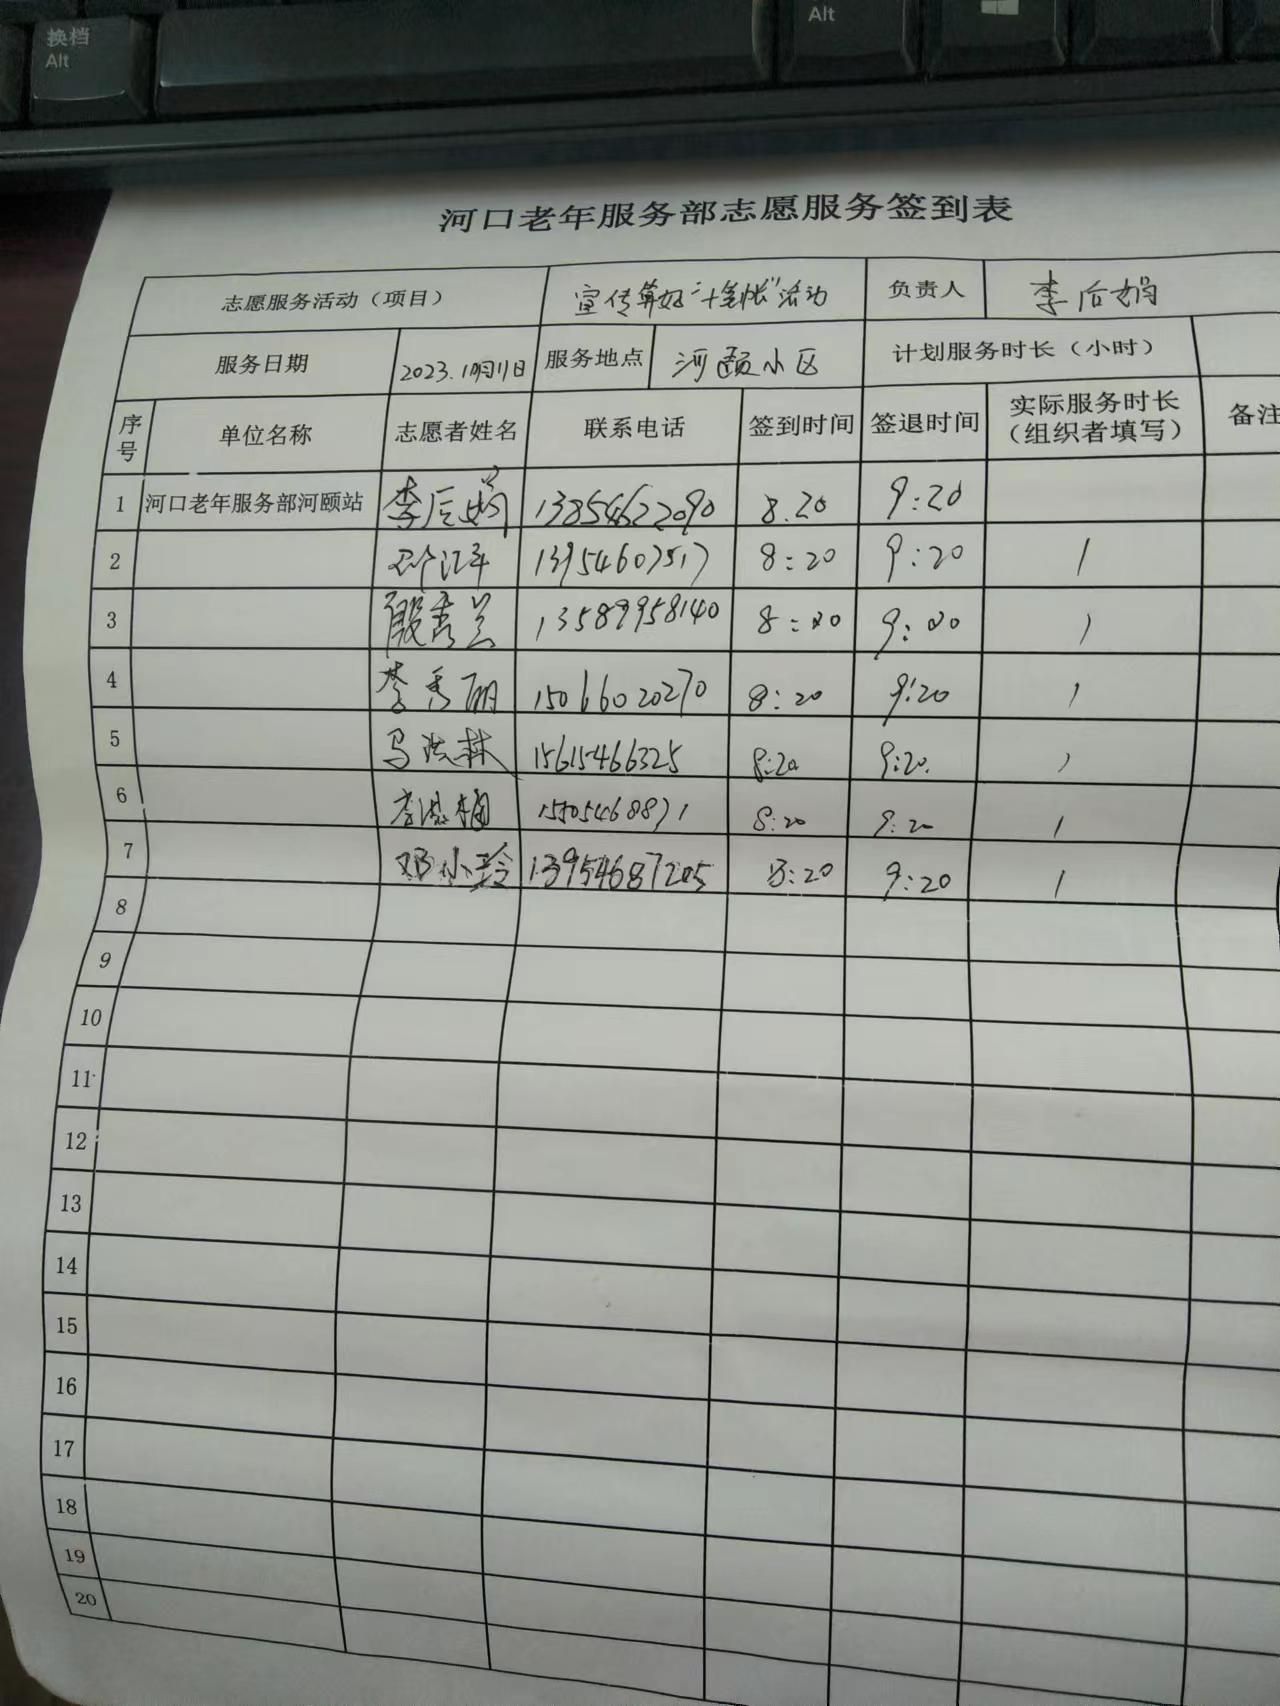 换档
Alt
Alt
河口老年服务部志愿服务签到表
志愿服务活动（项目） 宣传算好"十笔帐"活动 负责人 李后娟
服务日期 2023.10月11日 服务地点 河颐小区 计划服务时长（小时）
序号 单位名称 志愿者姓名 联系电话 签到时间 签退时间 实际服务时长（组织者填写） 备注
1 河口老年服务部河颐站 李后娟 13854622090 8.20 9:20
2 江平 13954607517 8:20 9:20 1
3 殷秀兰 13589958140 8:20 9:20 1
4 李秀丽 15066020270 8:20 9:20 1
5 马洪林 15615466325 8:20 9:20. 1
6 李淑梅 8:20 9:20 1
7 邓小玲 13954687205 8:20 9:20 1
8
9
10
11
12
13
14
15
16
17
18
19
20